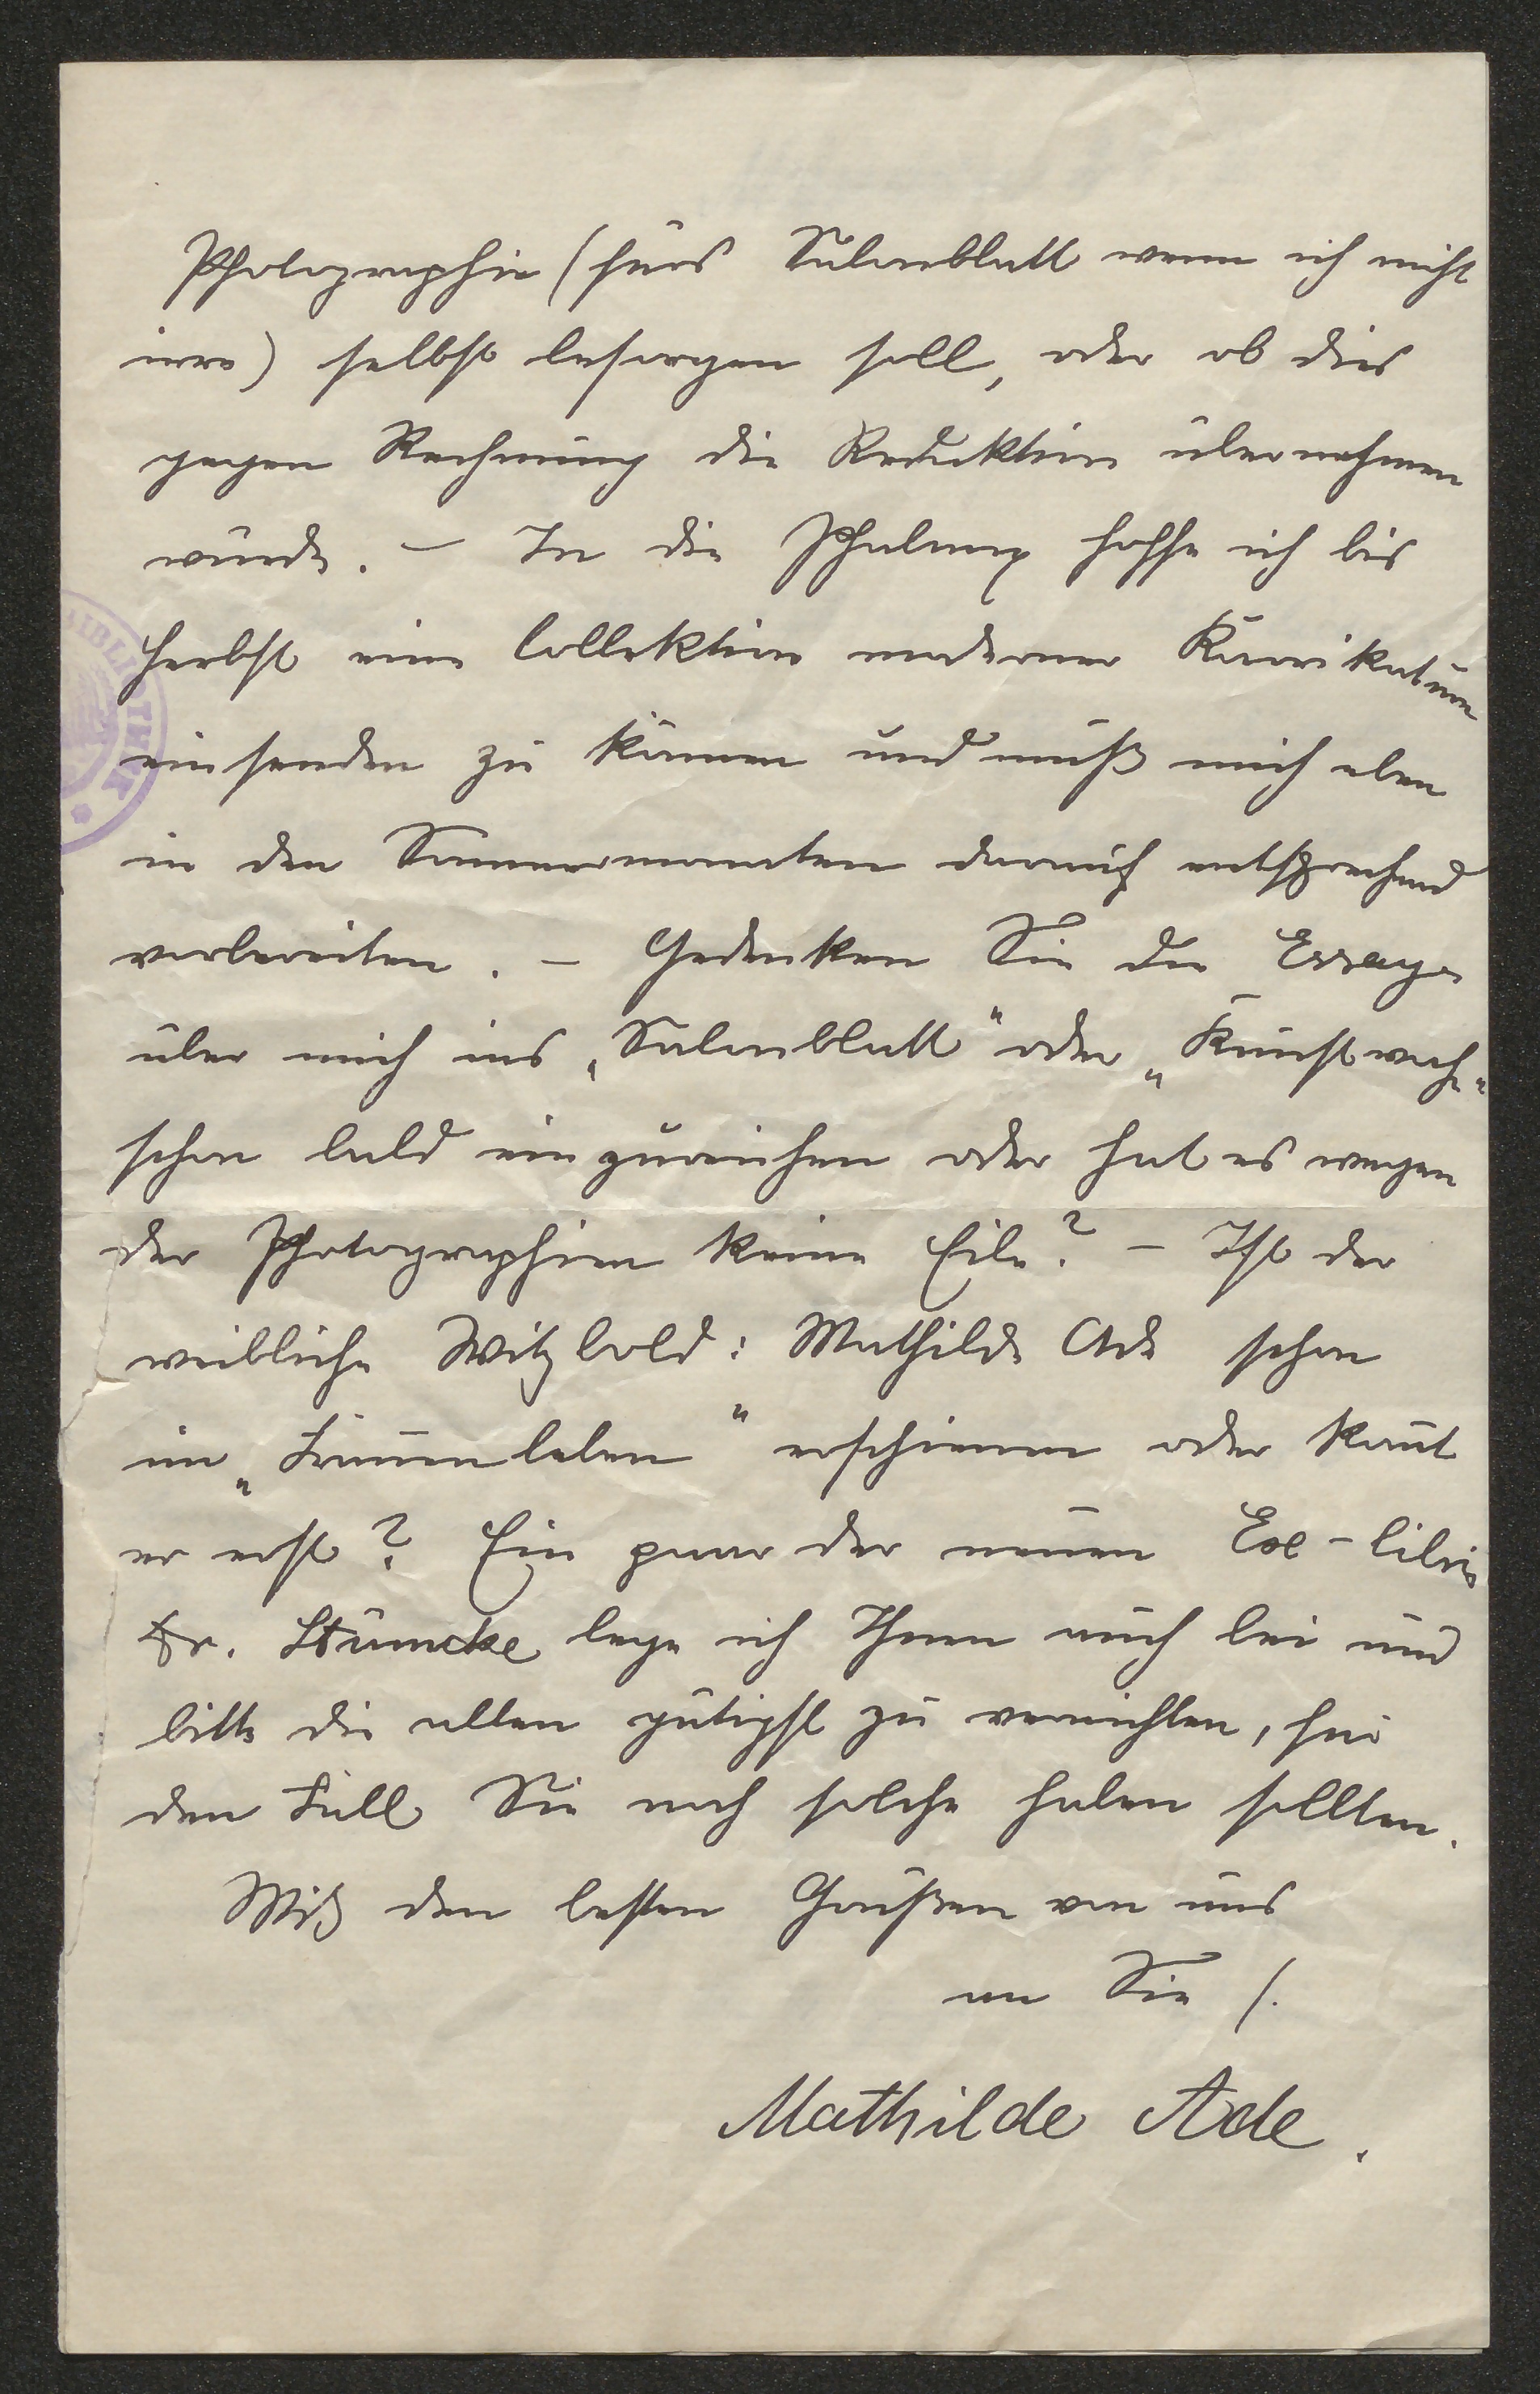 Photographie (fürs Salonblatt wenn ich nicht
irre) selbst besorgen soll, oder ob dies
gegen Rechnung die Redaktion übernehmen
würde. — In die Phalanx hoffe ich bis
Herbst eine Collektion moderner Karrikaturen
einsenden zu können und muß mich eben
in den Sommermonaten darauf entsprechend
vorbereiten. — Gedenken Sie die Essays
über mich ins „Salonblatt" oder „Kunstwache"
schon bald einzureichen oder hat es wegen
der Photographien keine Eile? — Ist der
weibliche Witzbold: Mathilde Ade schon
im „Frauenleben" erschienen oder kommt
er erst? Ein paar der neuen Exe-libris
Dr. Stümcke lege ich Ihnen auch bei und
bitte die alten gütigst zu vernichten, für
den Fall Sie noch solche haben sollten.
Mit den besten Grüßen von uns
an Sie /.
Mathilde Ade.
BIBLIOTHEK